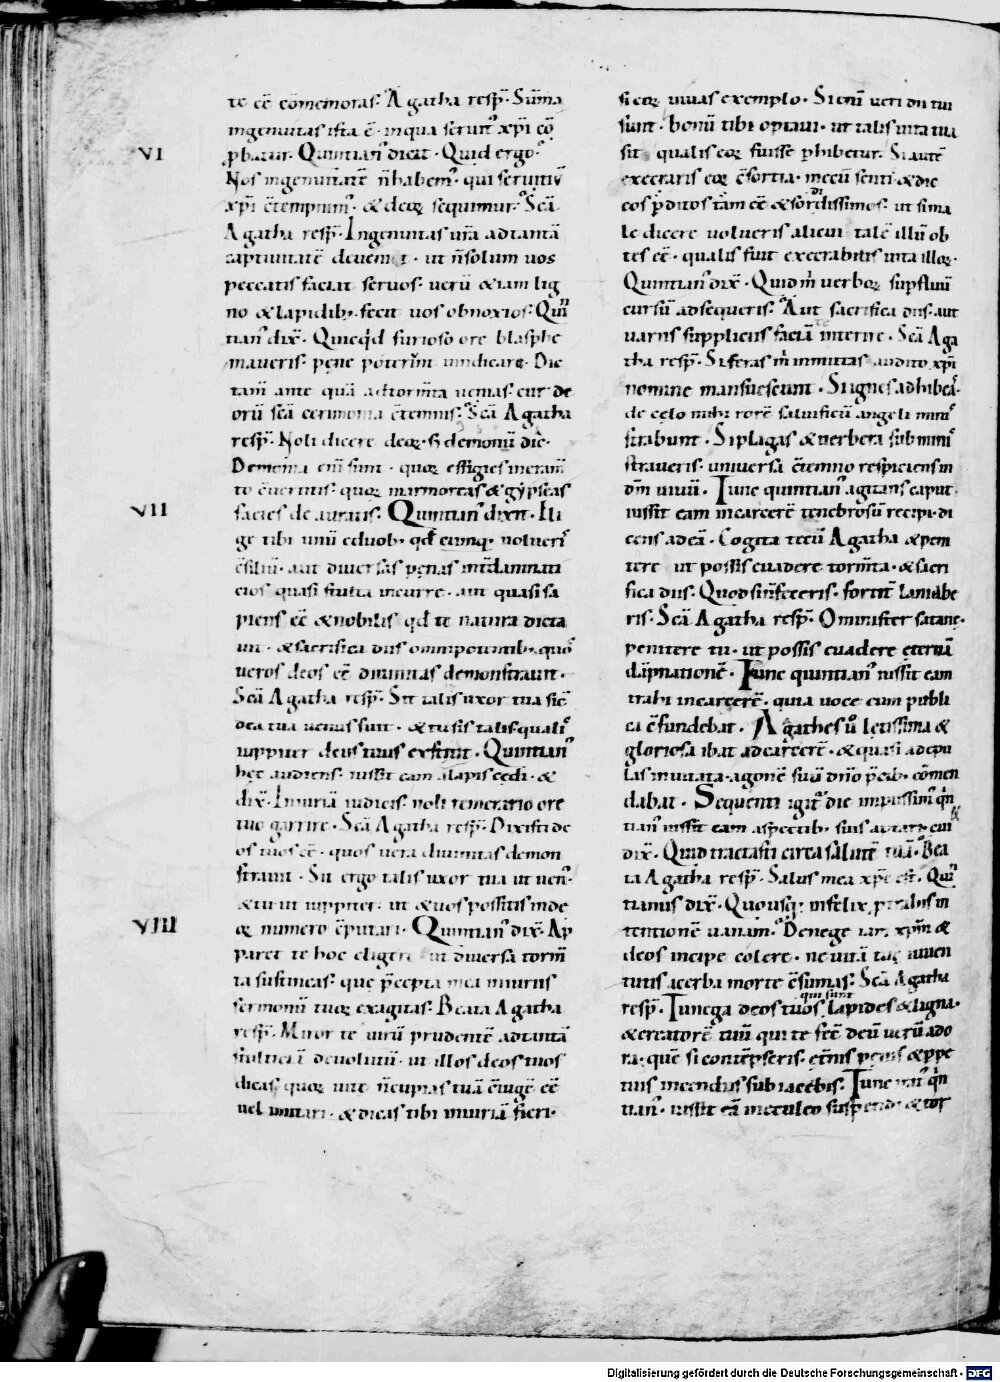 te cē cōmemoras· Agatha resp̄· Sūma
ingenuitas ista ē· inqua seruit᾽ xp̄i cō
ꝓbatur· Quintian᾽ dicit· Quid ergo·
VI
Nos ingenuitatē n̄habem᾽· qui seruitiū
xp̄i c̄tempnim᾽· & deoꝝ sequimur· Scā
Agatha resp̄· Ingenuitas ur̄a adtantā
captiuitatē deuenit· ut n̄solum uos
peccatis faciat seruos· uerū &iam lig
no & lapidib; fecit uos obnoxios· Qui
tian᾽ dix̄· Quicq'd furioso ore blasphe
maueris· pene poterūt uindicare· Dic
tam̄ ante quā adtorm̄ta uenias· cur de
orū scā cerimonia c̄temnis· Scā Agatha
resp̄· Noli dicere deoꝝ· s; demoniū dic·
Demonia eni sunt· quoꝝ effigies ineram̄
to c̄uertitis· quoꝝ marmoreas & gẏpseas
facies de auratis· Quintian᾽ dixit· Eli
VII
ge tibi unū eduob; qd̄ cunq; uolueri᾽
c̄siliū· aut diuersas penas int̄damnati
cios quasi stulta incurre· aut quasi sa
piens cē & nobilis qd̄ te natura dicta
uit· & sacrifica diis omnipotentib; quo᾽
ueros deos eē diuinitas demonstrauit·
Scā Agatha resp̄· Sit talis uxor tua sic̄
dea tua uenus fuit· & tu sis talis quali᾽
iuppiter deus tuus extitit· Quintian᾽
hec audiens· iussit eam alapis cedi· &
dix̄· Iniuriā iudicis· noli temerario ore
tuo garrire· Scā Agatha resp̄· Dixisti de
os tuos eē· quos uera diuinitas demon
strauit· Sit ergo talis uxor tua ut uen᾽·
& tu ut iuppiter· ut & uos possitis inde
oꝝ numero c̄putari· Quintian᾽ dix̄· Ap
VIII
paret te hoc eligere ut diuersa torm̄
ta sustineas· que p̄cepta mea iniuriis
sermonū tuoꝝ exagitas· Beata Agatha
resp̄· Miror te uirū prudentē adtantā
stulticiā deuolutū· ut illos deos tuos
dicas quoꝝ uitē n̄cupias tuā c̄iugē eē
uel imitari· & dicas tibi iniuriā fieri·
si eoꝝ uiuas exemplo· Si eni ueri dii tui
sunt· bonū tibi optaui· ut talis uita tua
sit qualis eoꝝ fuisse ꝑhibetur· Si autē
execraris eoꝝ c̄sortia· mecū senti & dic
eos ꝑditos tam eē & sordissimos· ut si ma
le dicere uolueris alicui talē illū ob
tes eē· qualis fuit execrabilis uita illoꝝ·
Quintian᾽ dix̄· Quid m̄ uerboꝝ suꝑfluū
cursū adsequeris· Aut sacrifica diis· aut
uariis suppliciis faciā te interire· Scā Aga
tha resp̄· Si feras m̄ inmittas audito xp̄i
nomine mansuescunt· Si ignes adhibea᾽·
de celo mihi rorē saluificū angeli mini᾽
strabunt· Si plagas & uerbera submini᾽
straueris· uniuersa c̄temno respiciens in
dm̄ uiuū· Tunc quintian᾽ agitans caput·
iussit eam incarcerē tenebrosū recipi· di
cens ad eā· Cogita tecū Agatha & peni
tere ut possis euadere torm̄ta· & sacri
fica diis· Quod sin̄feceris· fortit᾽ laniabe
ris· Scā Agatha resp̄· O minister satane·
penitere tu· ut possis euadere eternā
dāpnationē· Tunc quintian᾽ iussit eam
trahi incarcerē· quia uoce eum publi
ca c̄fundebat· Agathes ū letissima &
gloriosa ibat adcarcerē· & quasi adepu
las inuitata· agonē suū dn̄o p̄cib; cōmen
dabat· Sequenti igit᾽ die impiissim᾽ q'n
tian᾽ iussit eam aspectib; suis aptari· cui
&
dix̄· Quid tractasti circa salutē tuā· Bea
ta Agatha resp̄· Salus mea xp̄c est· Qui
tianus dix̄· Quousq; infelix ptrahis in
tentionē uanam· Denega iam xp̄m &
deos incipe colere· ne uitā tuę iuuen
tutis acerba morte c̄sumas· Scā Agatha
resp̄· Tu nega deos tuos qui sunt lapides & ligna·
& creatorē tuū qui te fecit deū uerū ado
ra· quē si contēpseris· et̄nis penis & ꝑpe
tuis incendiis subiacebis· Tunc irat᾽ q'n
tian᾽· iussit eā ineculeo suspendi & tor
Digitalisierung gefördert durch die Deutsche Forschungsgemeinschaft - DFG